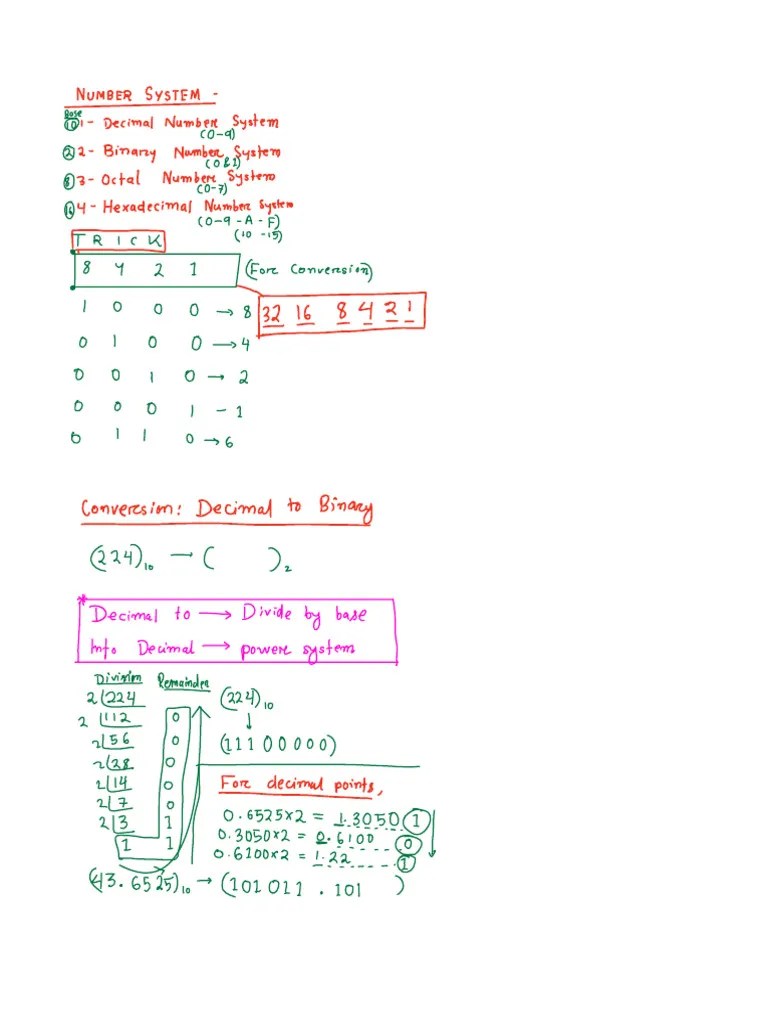 NUMBER SYSTEM -
Base
10 1- Decimal Number System
(0-9)
2 2- Binary Number System
(0&1)
8 3- Octal Number System
(0-7)
16 4- Hexadecimal Number System
(0-9 -A - F)
(10 -15)
TRICK
8 4 2 1 (For Conversion)
1 0 0 0 → 8 32 16 8 4 2 1
0 1 0 0 → 4
0 0 1 0 → 2
0 0 0 1 - 1
0 1 1 0 → 6
Conversion: Decimal to Binary
(224)10 → ( )2
* Decimal to → Divide by base
Into Decimal → power system
Division Remainder
2 224 (224)10
2 112 0 ↓
2 56 0 (11100000)
2 28 0
2 14 0 For decimal points,
2 7 0 0.6525×2 = 1.3050 1
2 3 1 0.3050×2 = 0.6100 0
1 1 0.6100×2 = 1.22 1
(43.6525)10 → (101011 . 101 )